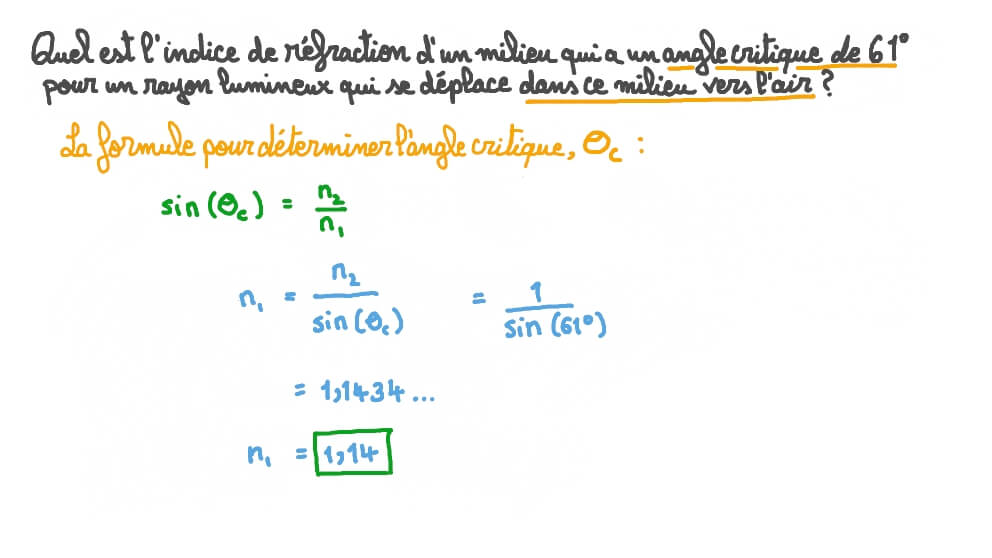 Quel est l'indice de réfraction d'un milieu qui a un angle critique de 61°
pour un rayon lumineux qui se déplace dans ce milieu vers l'air ?
La formule pour déterminer l'angle critique, θc :
sin (θc) = n2/n1
n1 = n2/sin (θc) = 1/sin (61°)
= 1,1434...
n1 = 1,14